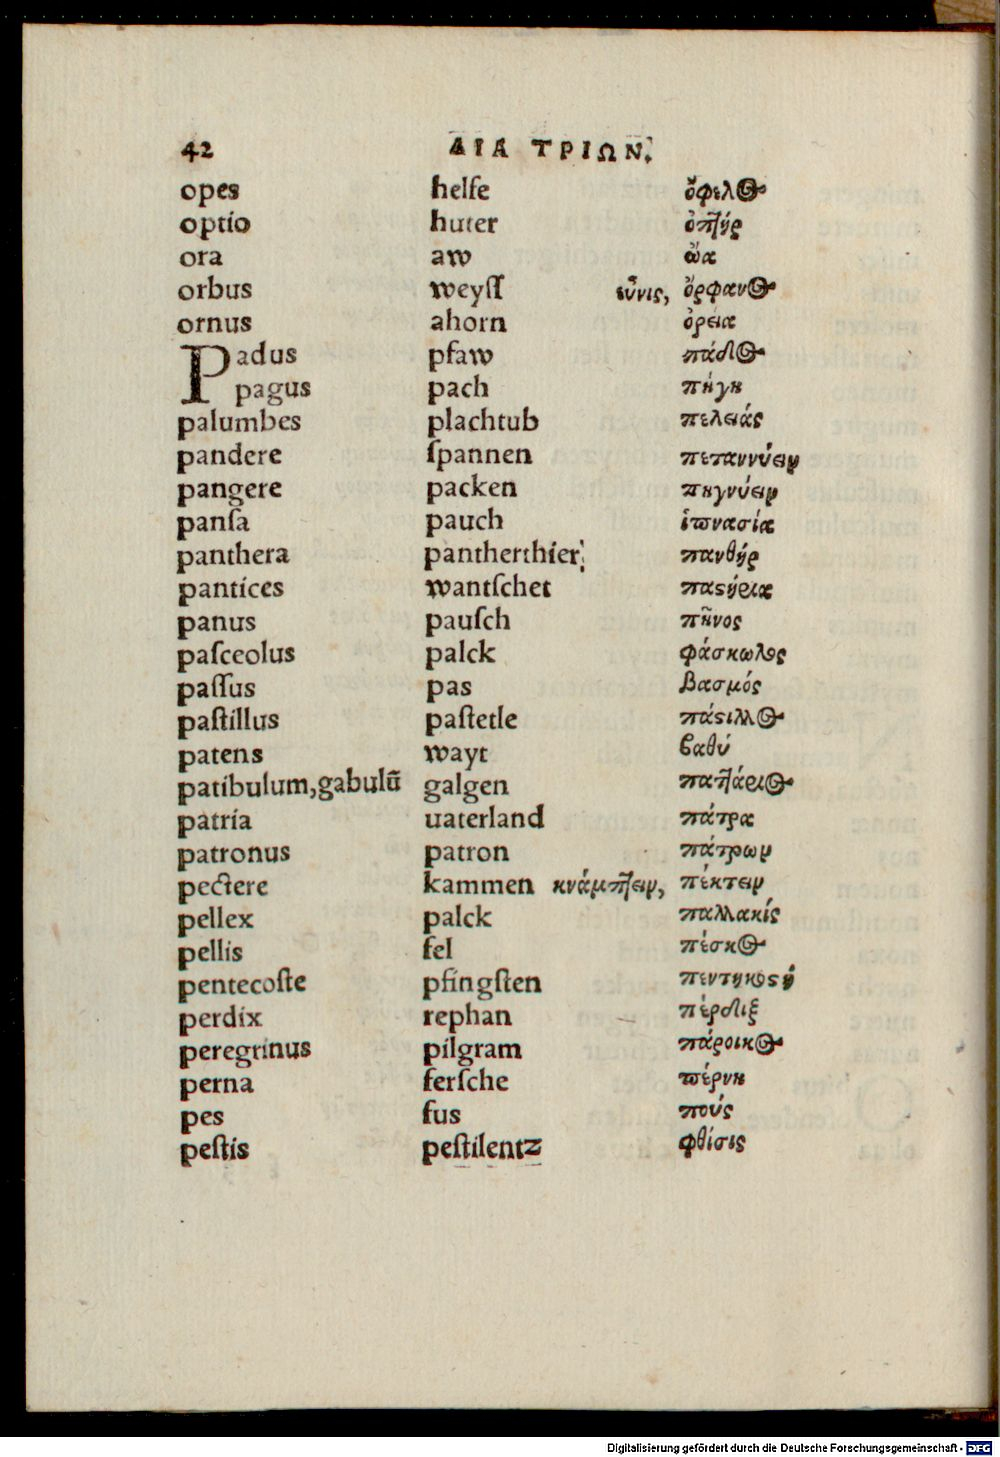 42 ΔΙΑ ΤΡΙΩΝ.
opes helfe ὄφελος
optio huter ὀπτήρ
ora aw ὤα
orbus weyſſ εὖνις, ὄρφανος
ornus ahorn ὀρεία
Padus pfaw πάδος
pagus pach πηγή
palumbes plachtub πελειάς
pandere ſpannen πεταννύειν
pangere packen πηγνύειν
panſa pauch
panthera pantherthier πανθήρ
pantices wantſchet
panus pauſch πῆνος
paſceolus palck φάσκωλος
paſſus pas βασμός
paſtillus paſtetle πάστιλλος
patens wayt βαθύ
patibulum,gabulū galgen
patria uaterland πάτρα
patronus patron πάτρων
pectere kammen κνάμπτειν, πέκτειν
pellex palck παλλακίς
pellis fel πέσκος
pentecoſte pfingſten πεντηκοστή
perdix rephan πέρδιξ
peregrinus pilgram πάροικος
perna ferſche πέρνη
pes fus πούς
peſtis peſtilentz φθίσις
Digitalisierung gefördert durch die Deutsche Forschungsgemeinschaft - DFG